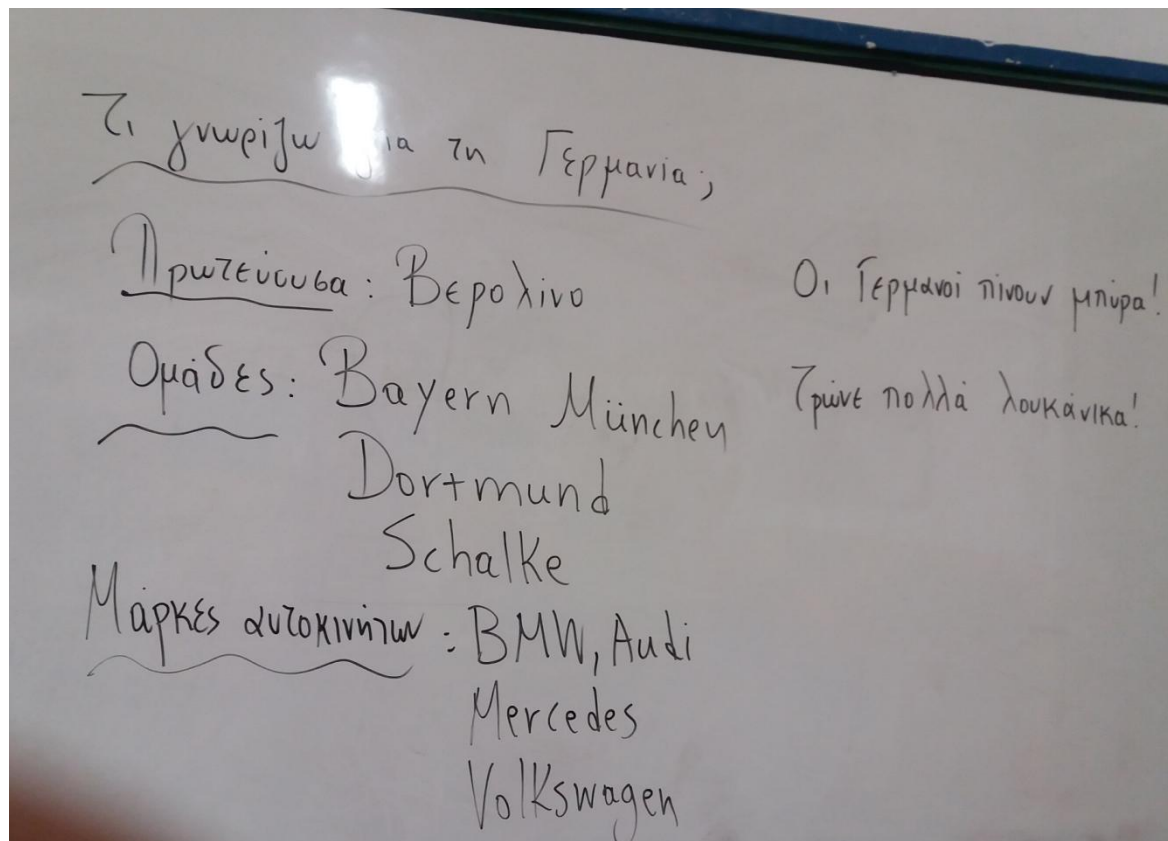 Τι γνωρίζω για τη Γερμανία;
Πρωτεύουσα: Βερολίνο
Ομάδες: Bayern München
Dortmund
Schalke
Μάρκες αυτοκινήτων: BMW, Audi
Mercedes
Volkswagen
Οι Γερμανοί πίνουν μπύρα!
Τρώνε πολλά λουκάνικα!